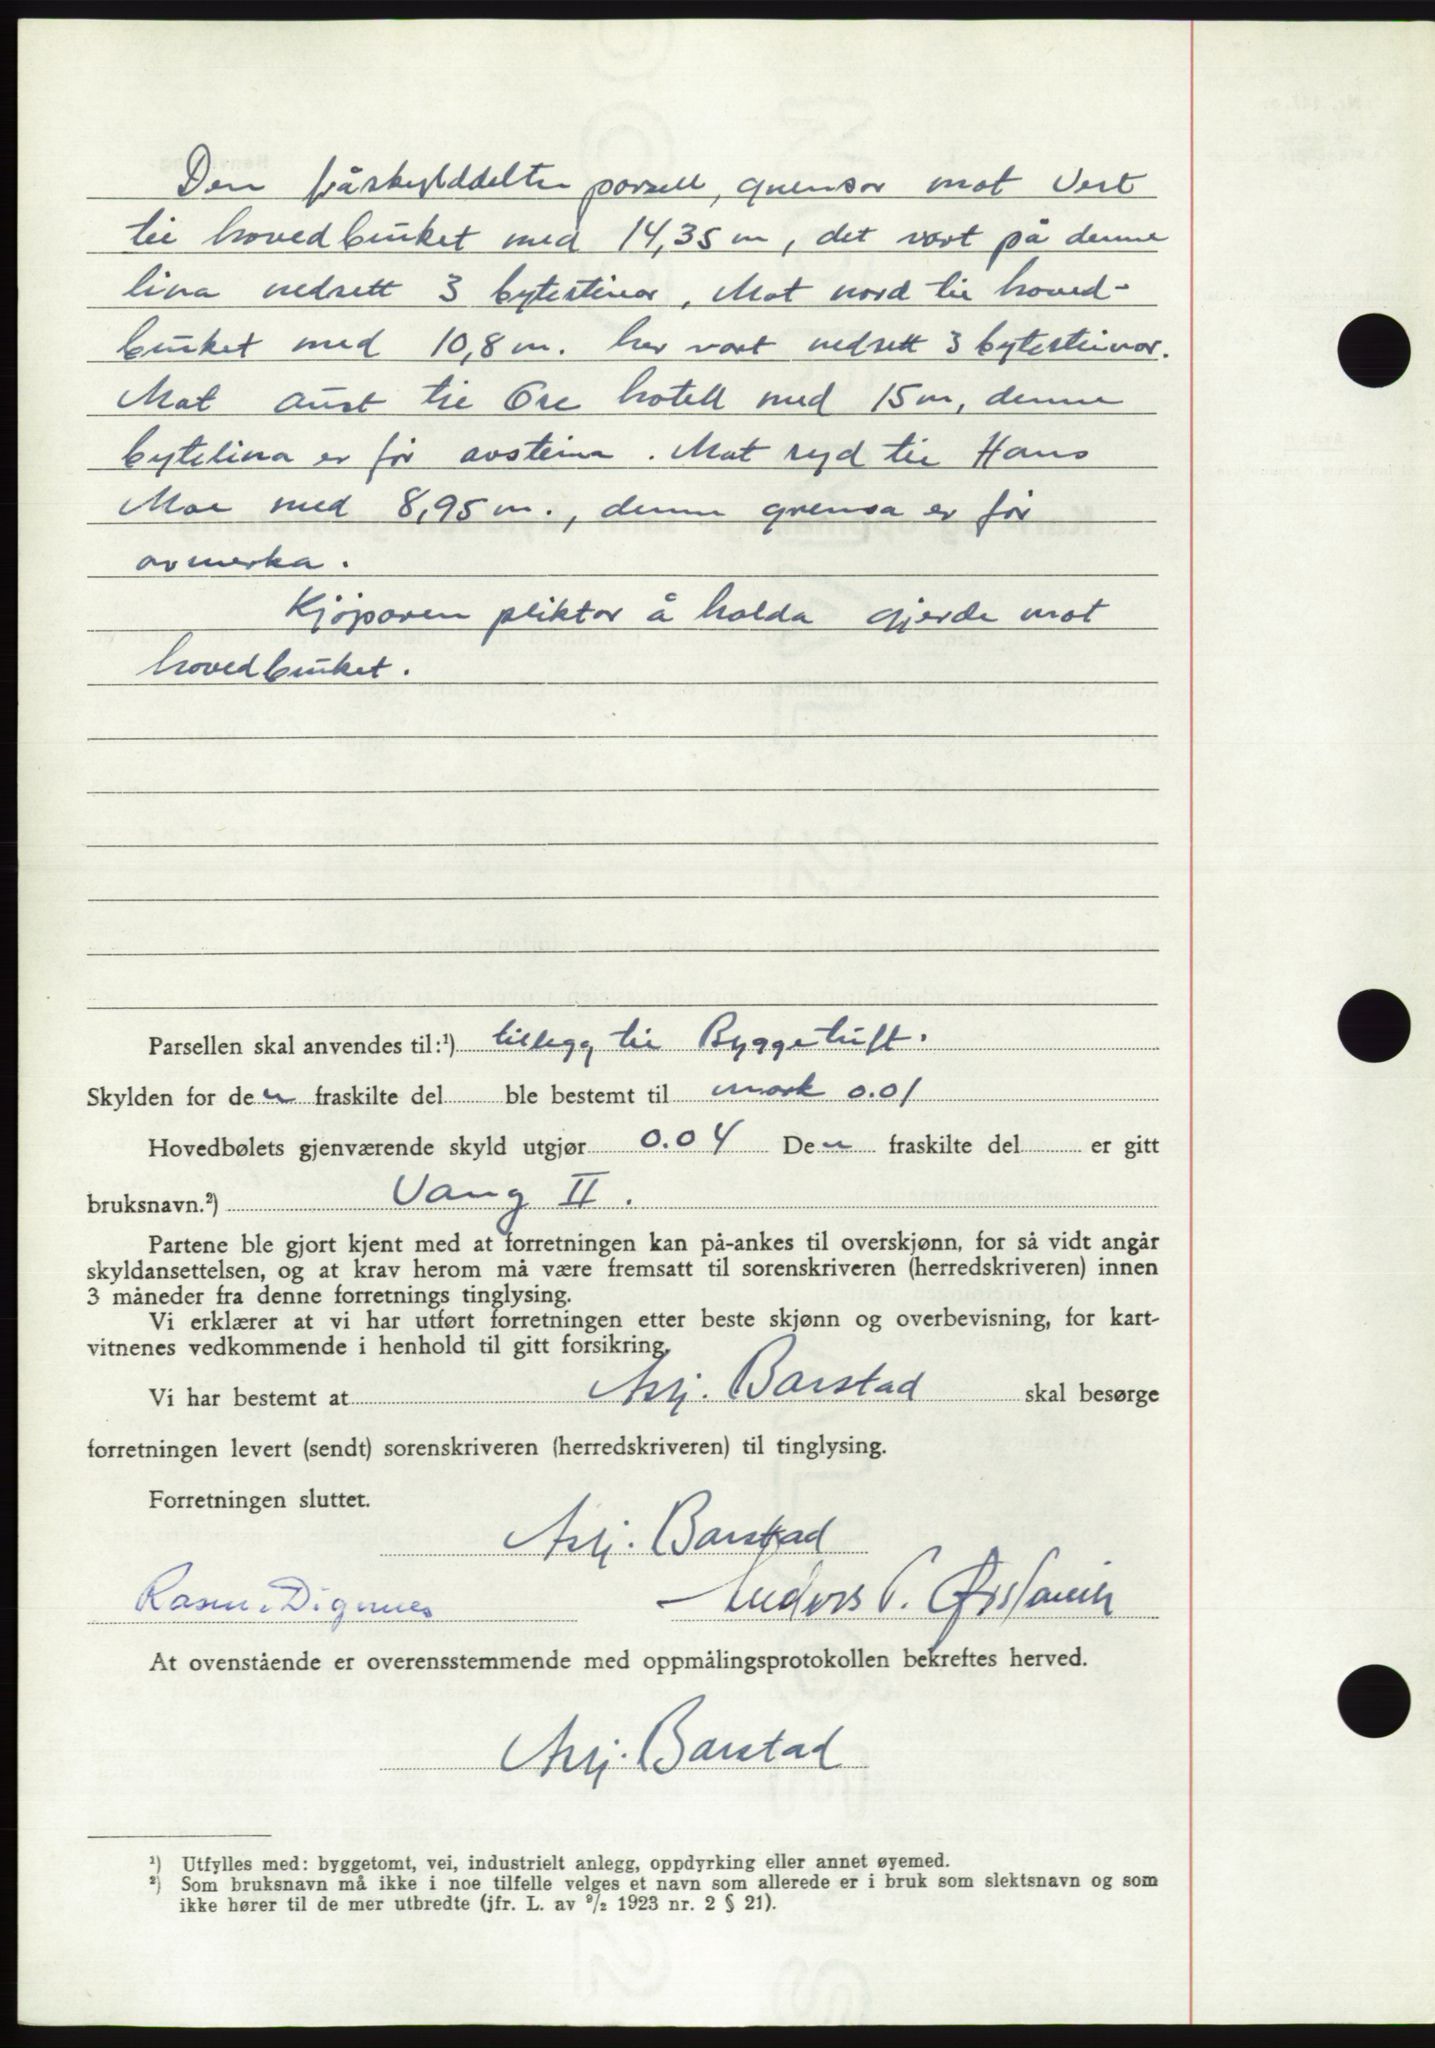 Den fråskylddelte parsell, grensar mot Vest
til hovedbruket med 14,35 m, det vart på denne
lina nedsett 3 bytesteinar. Mot nord til hoved-
bruket med 10,8 m. her vart nedsett 3 bytesteinar.
Mot aust til Øre hotell med 15 m, denne
bytelina er før avsteina. Mot syd til Hans
Moe med 8,95 m., denne grensa er før
avmerka.
Kjøparen pliktar å halda gjerde mot
hovedbruket.
Parsellen skal anvendes til:¹) tillegg til Byggetuft.
Skylden for den fraskilte del ble bestemt til mark 0.01
Hovedbølets gjenværende skyld utgjør 0.04 Den fraskilte del er gitt
bruksnavn.²) Vang II.
Partene ble gjort kjent med at forretningen kan på-ankes til overskjønn, for så vidt angår
skyldansettelsen, og at krav herom må være fremsatt til sorenskriveren (herredskriveren) innen
3 måneder fra denne forretnings tinglysing.
Vi erklærer at vi har utført forretningen etter beste skjønn og overbevisning, for kart-
vitnenes vedkommende i henhold til gitt forsikring.
Vi har bestemt at Asbj. Barstad skal besørge
forretningen levert (sendt) sorenskriveren (herredskriveren) til tinglysing.
Forretningen sluttet.
Asbj. Barstad
Rasm. Digernes Anders P.
At ovenstående er overensstemmende med oppmålingsprotokollen bekreftes herved.
Asbj. Barstad
¹) Utfylles med: byggetomt, vei, industrielt anlegg, oppdyrking eller annet øyemed.
²) Som bruksnavn må ikke i noe tilfelle velges et navn som allerede er i bruk som slektsnavn og som
ikke hører til de mer utbredte (jfr. L. av ⁹/₂ 1923 nr. 2 § 21).